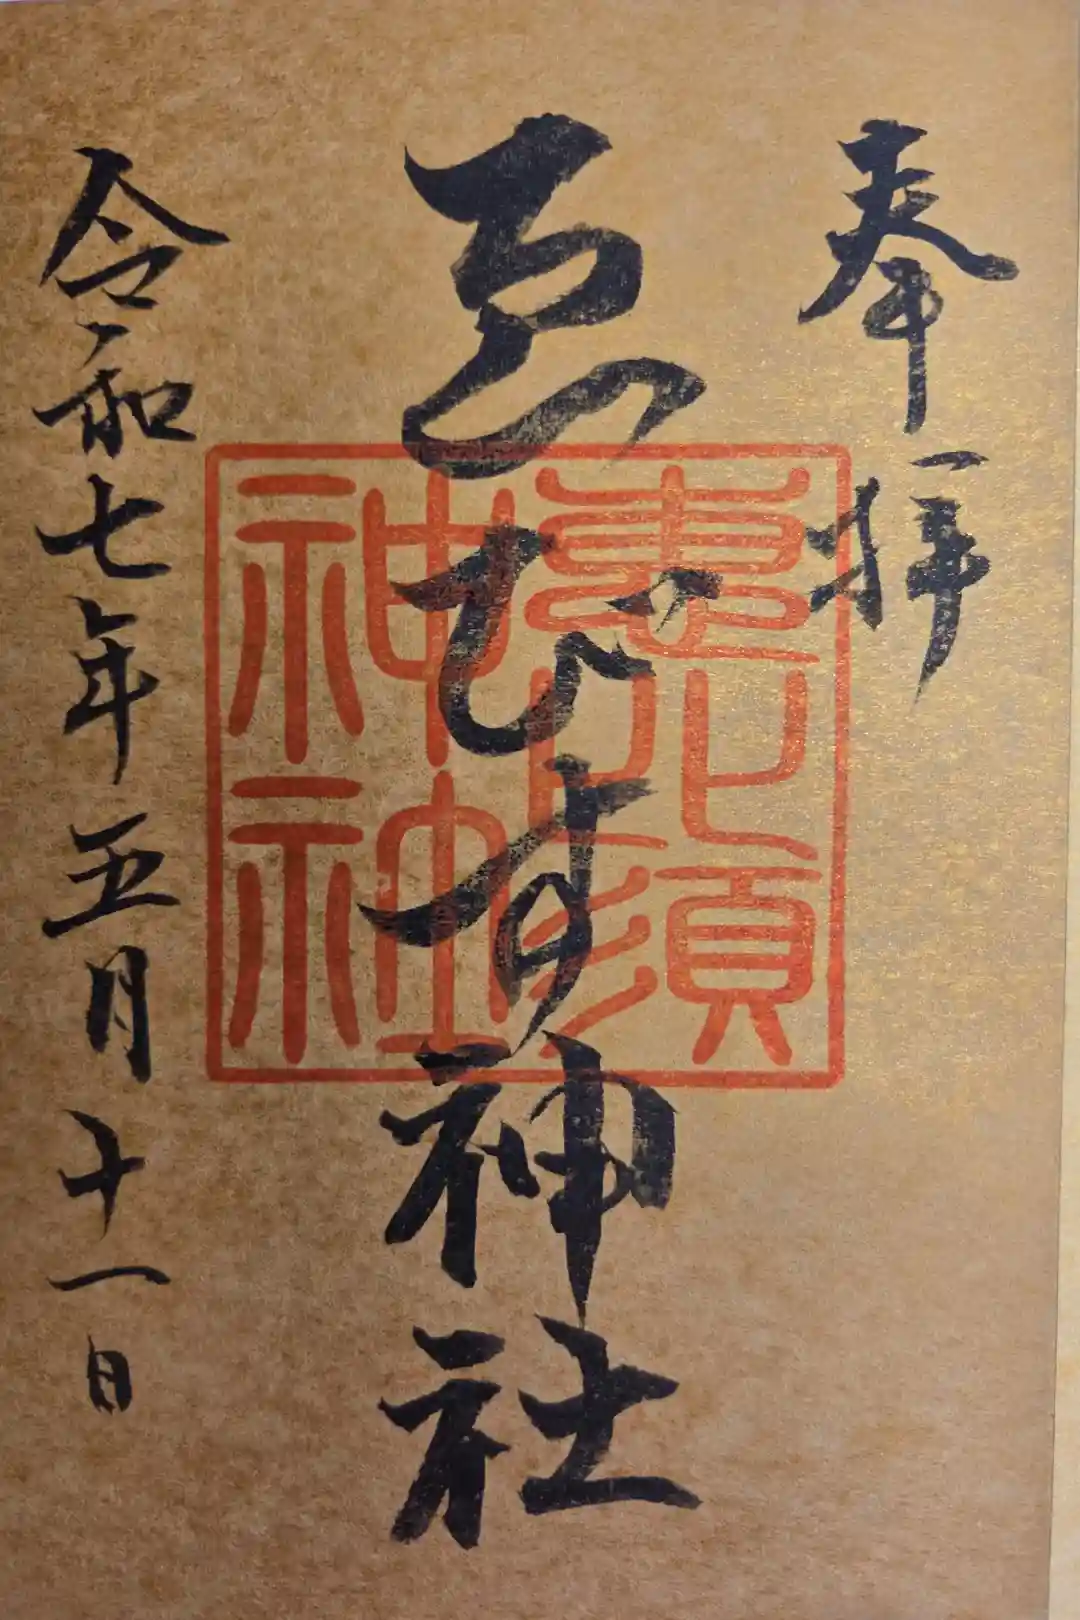 奉拝
ゑびす神社
令和七年五月十一日
惠比須
神社